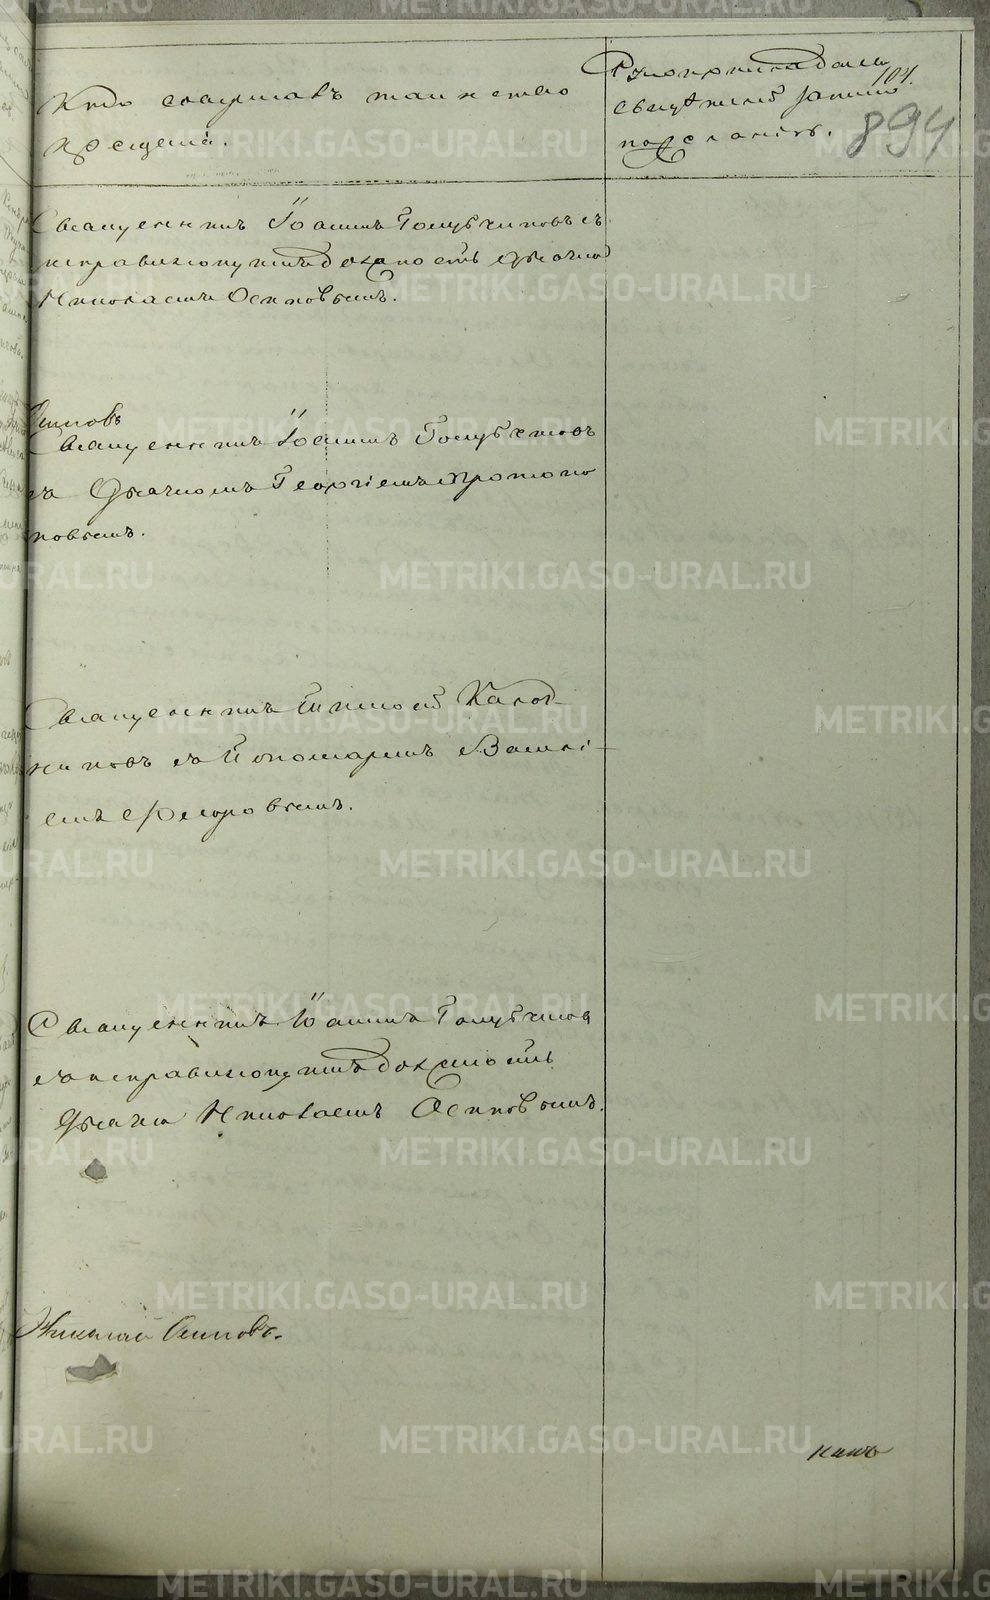 Кто совершалъ таинство
крещенія.
Рукоприкладство
свидѣтелей записи
по желанію.
101.
894
Священникъ Іоаннъ Голубчиковъ съ
исправляющимъ должность дьячка
Николаемъ Осиповымъ.
Осиповъ
Священникъ Іоаннъ Голубчиковъ
съ Дьячкомъ Георгіемъ Протопо
повымъ.
Священникъ Тимоѳей Калод-
никовъ съ Пономаремъ Василі-
емъ Ѳедоровымъ.
Священникъ Іоаннъ Голубчиковъ
съ исправляющимъ должность
Дьячка Николаемъ Осиповымъ.
Николай Осиповъ.
METRIKI.GASO-URAL.RU